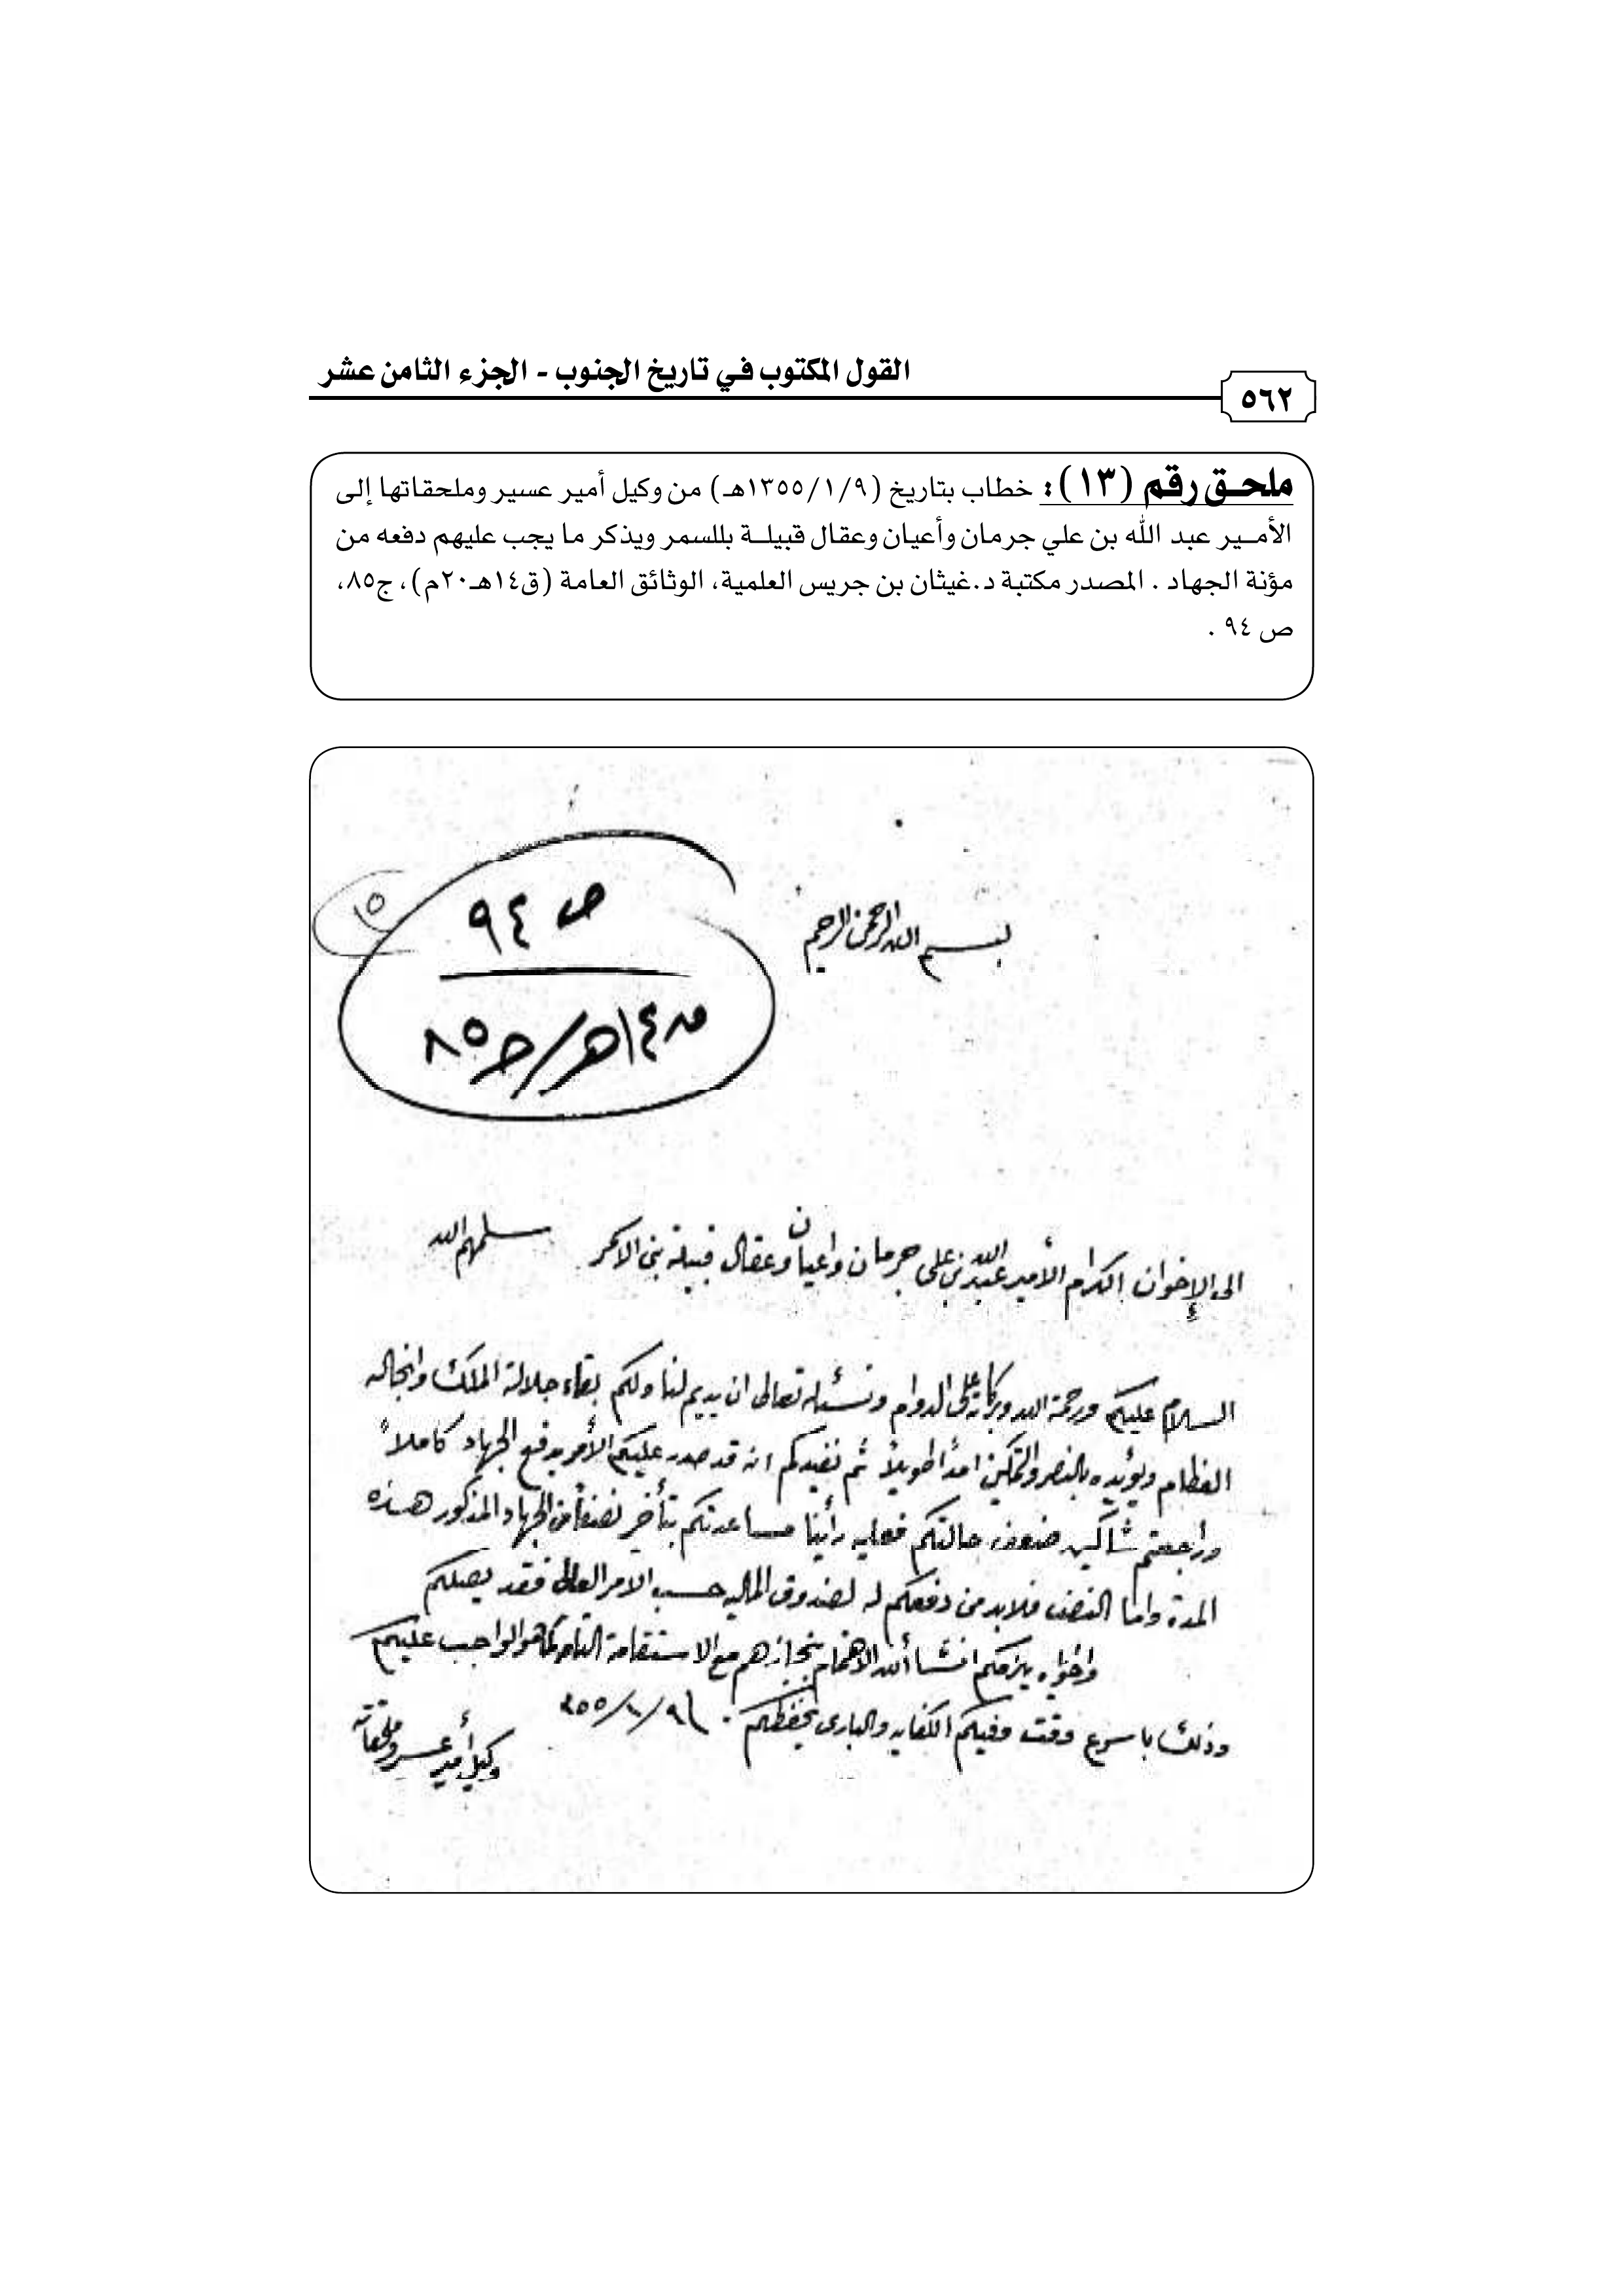 القول المكتوب في تاريخ الجنوب - الجزء الثامن عشر
٥٦٢
ملحـق رقم (١٣): خطاب بتاريخ (١٣٥٥/١/٩هـ) من وكيل أمير عسير وملحقاتها إلى
الأمـير عبد الله بن علي جرمان وأعيان وعقال قبيلـة بللسمر ويذكر ما يجب عليهم دفعه من
مؤنة الجهاد . المصدر مكتبة د.غيثان بن جريس العلمية، الوثائق العامة (ق١٤هـ٢٠م)، ج٨٥،
ص ٩٤ .
١٥
ص ٩٤
ق١٤هـ/ج٨٥
بسم الله الرحمن الرحيم
الى الإخوان الكرام الأمير عبد الله بن علي جرمان واعيان وعقال قبيلة بني الاحمر سلمهم الله
السلام عليكم ورحمة الله وبركاته على الدوام ونسئله تعالى ان يديم لنا ولكم بقاء جلالة الملك وانجاله
العظام ويؤيده بالنصر والتمكين امداً طويلاً ثم نفيدكم انه قد صدر عليكم الأمر بدفع الجهاد كاملاً
وراجعتم شاكين ضعف حالتكم فعليه رأينا مساعدتكم بتأخير نصفاً من الجهاد المذكور هذه
المدة واما النصف فلابد من دفعكم له لصندوق الماليه حسب الامر العالي فقد يصلكم
واخواه يلزمكم انشاألله الاهتمام بنجازهم مع الاستقامة التامه كما هو الواجب عليكم
وذلك باسرع وقت وفيكم الكفايه والباري يحفظكم . ٩/١/٣٥٥
وكيل أمير عسير وملحقاته